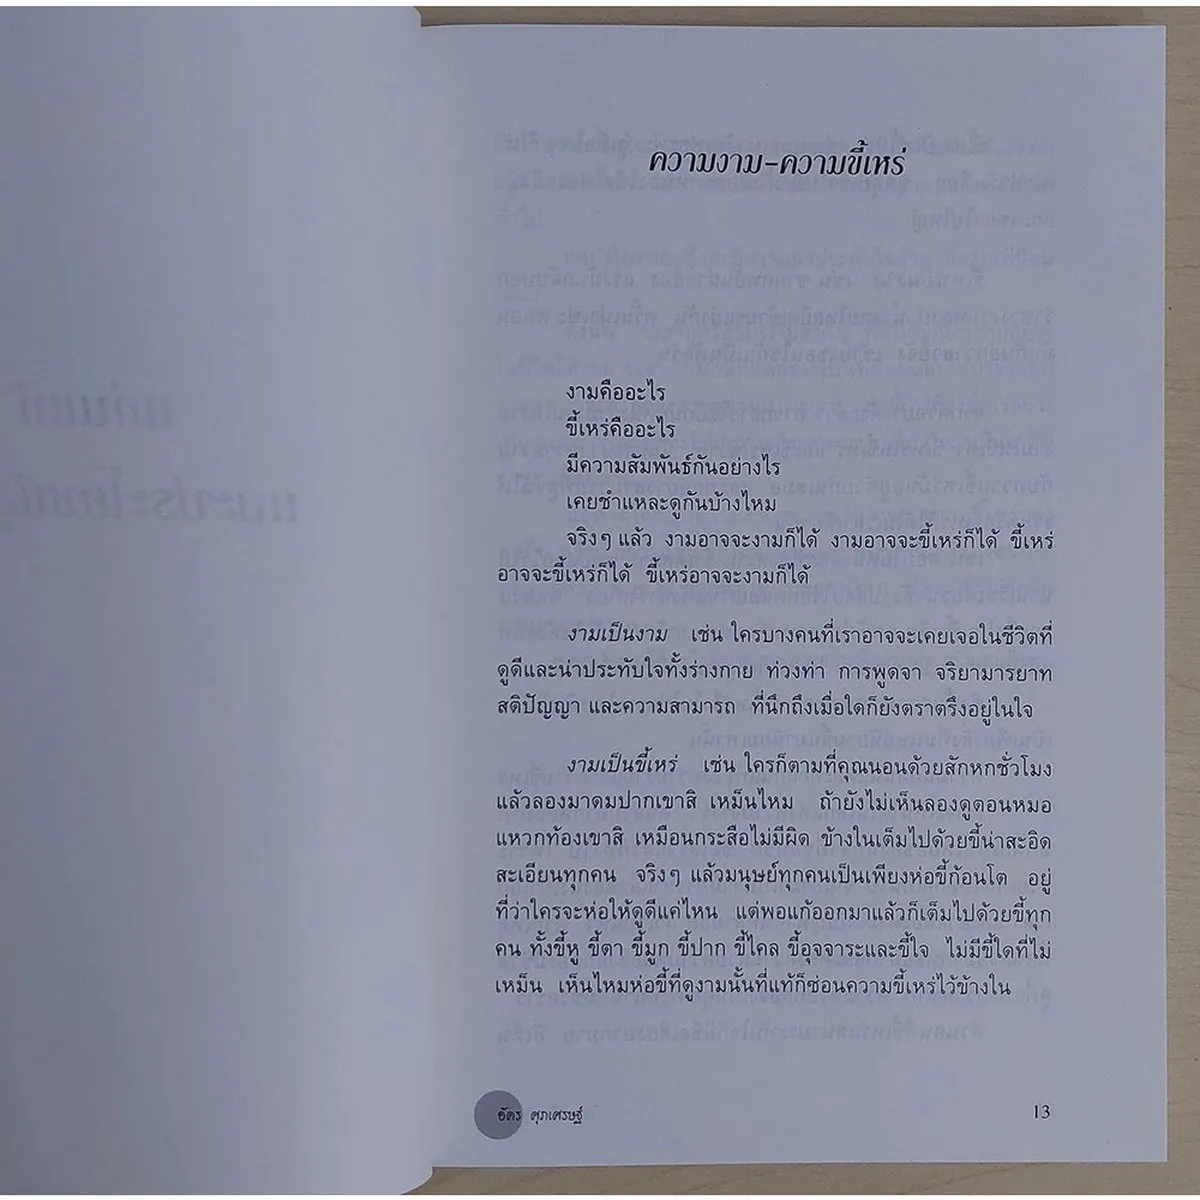 ความงาม-ความขี้เหร่
งามคืออะไร
ขี้เหร่คืออะไร
มีความสัมพันธ์กันอย่างไร
เคยชำแหละดูกันบ้างไหม
จริงๆ แล้ว งามอาจจะงามก็ได้ งามอาจจะขี้เหร่ก็ได้ ขี้เหร่
อาจจะขี้เหร่ก็ได้ ขี้เหร่อาจจะงามก็ได้
งามเป็นงาม เช่น ใครบางคนที่เราอาจจะเคยเจอในชีวิตที่
ดูดีและน่าประทับใจทั้งร่างกาย ท่วงท่า การพูดจา จริยามารยาท
สติปัญญา และความสามารถ ที่นึกถึงเมื่อใดก็ยังตราตรึงอยู่ในใจ
งามเป็นขี้เหร่ เช่น ใครก็ตามที่คุณนอนด้วยสักหกชั่วโมง
แล้วลองมาดมปากเขาสิ เหม็นไหม ถ้ายังไม่เห็นลองดูตอนหมอ
แหวกท้องเขาสิ เหมือนกระสือไม่มีผิด ข้างในเต็มไปด้วยขี้น่าสะอิด
สะเอียนทุกคน จริงๆ แล้วมนุษย์ทุกคนเป็นเพียงห่อขี้ก้อนโต อยู่
ที่ว่าใครจะห่อให้ดูดีแค่ไหน แต่พอแก้ออกมาแล้วก็เต็มไปด้วยขี้ทุก
คน ทั้งขี้หู ขี้ตา ขี้มูก ขี้ปาก ขี้ไคล ขี้อุจจาระและขี้ใจ ไม่มีขี้ใดที่ไม่
เหม็น เห็นไหมห่อขี้ที่ดูงามนั้นที่แท้ก็ซ่อนความขี้เหร่ไว้ข้างใน
อัคร ศุภเศรษฐ์ 13